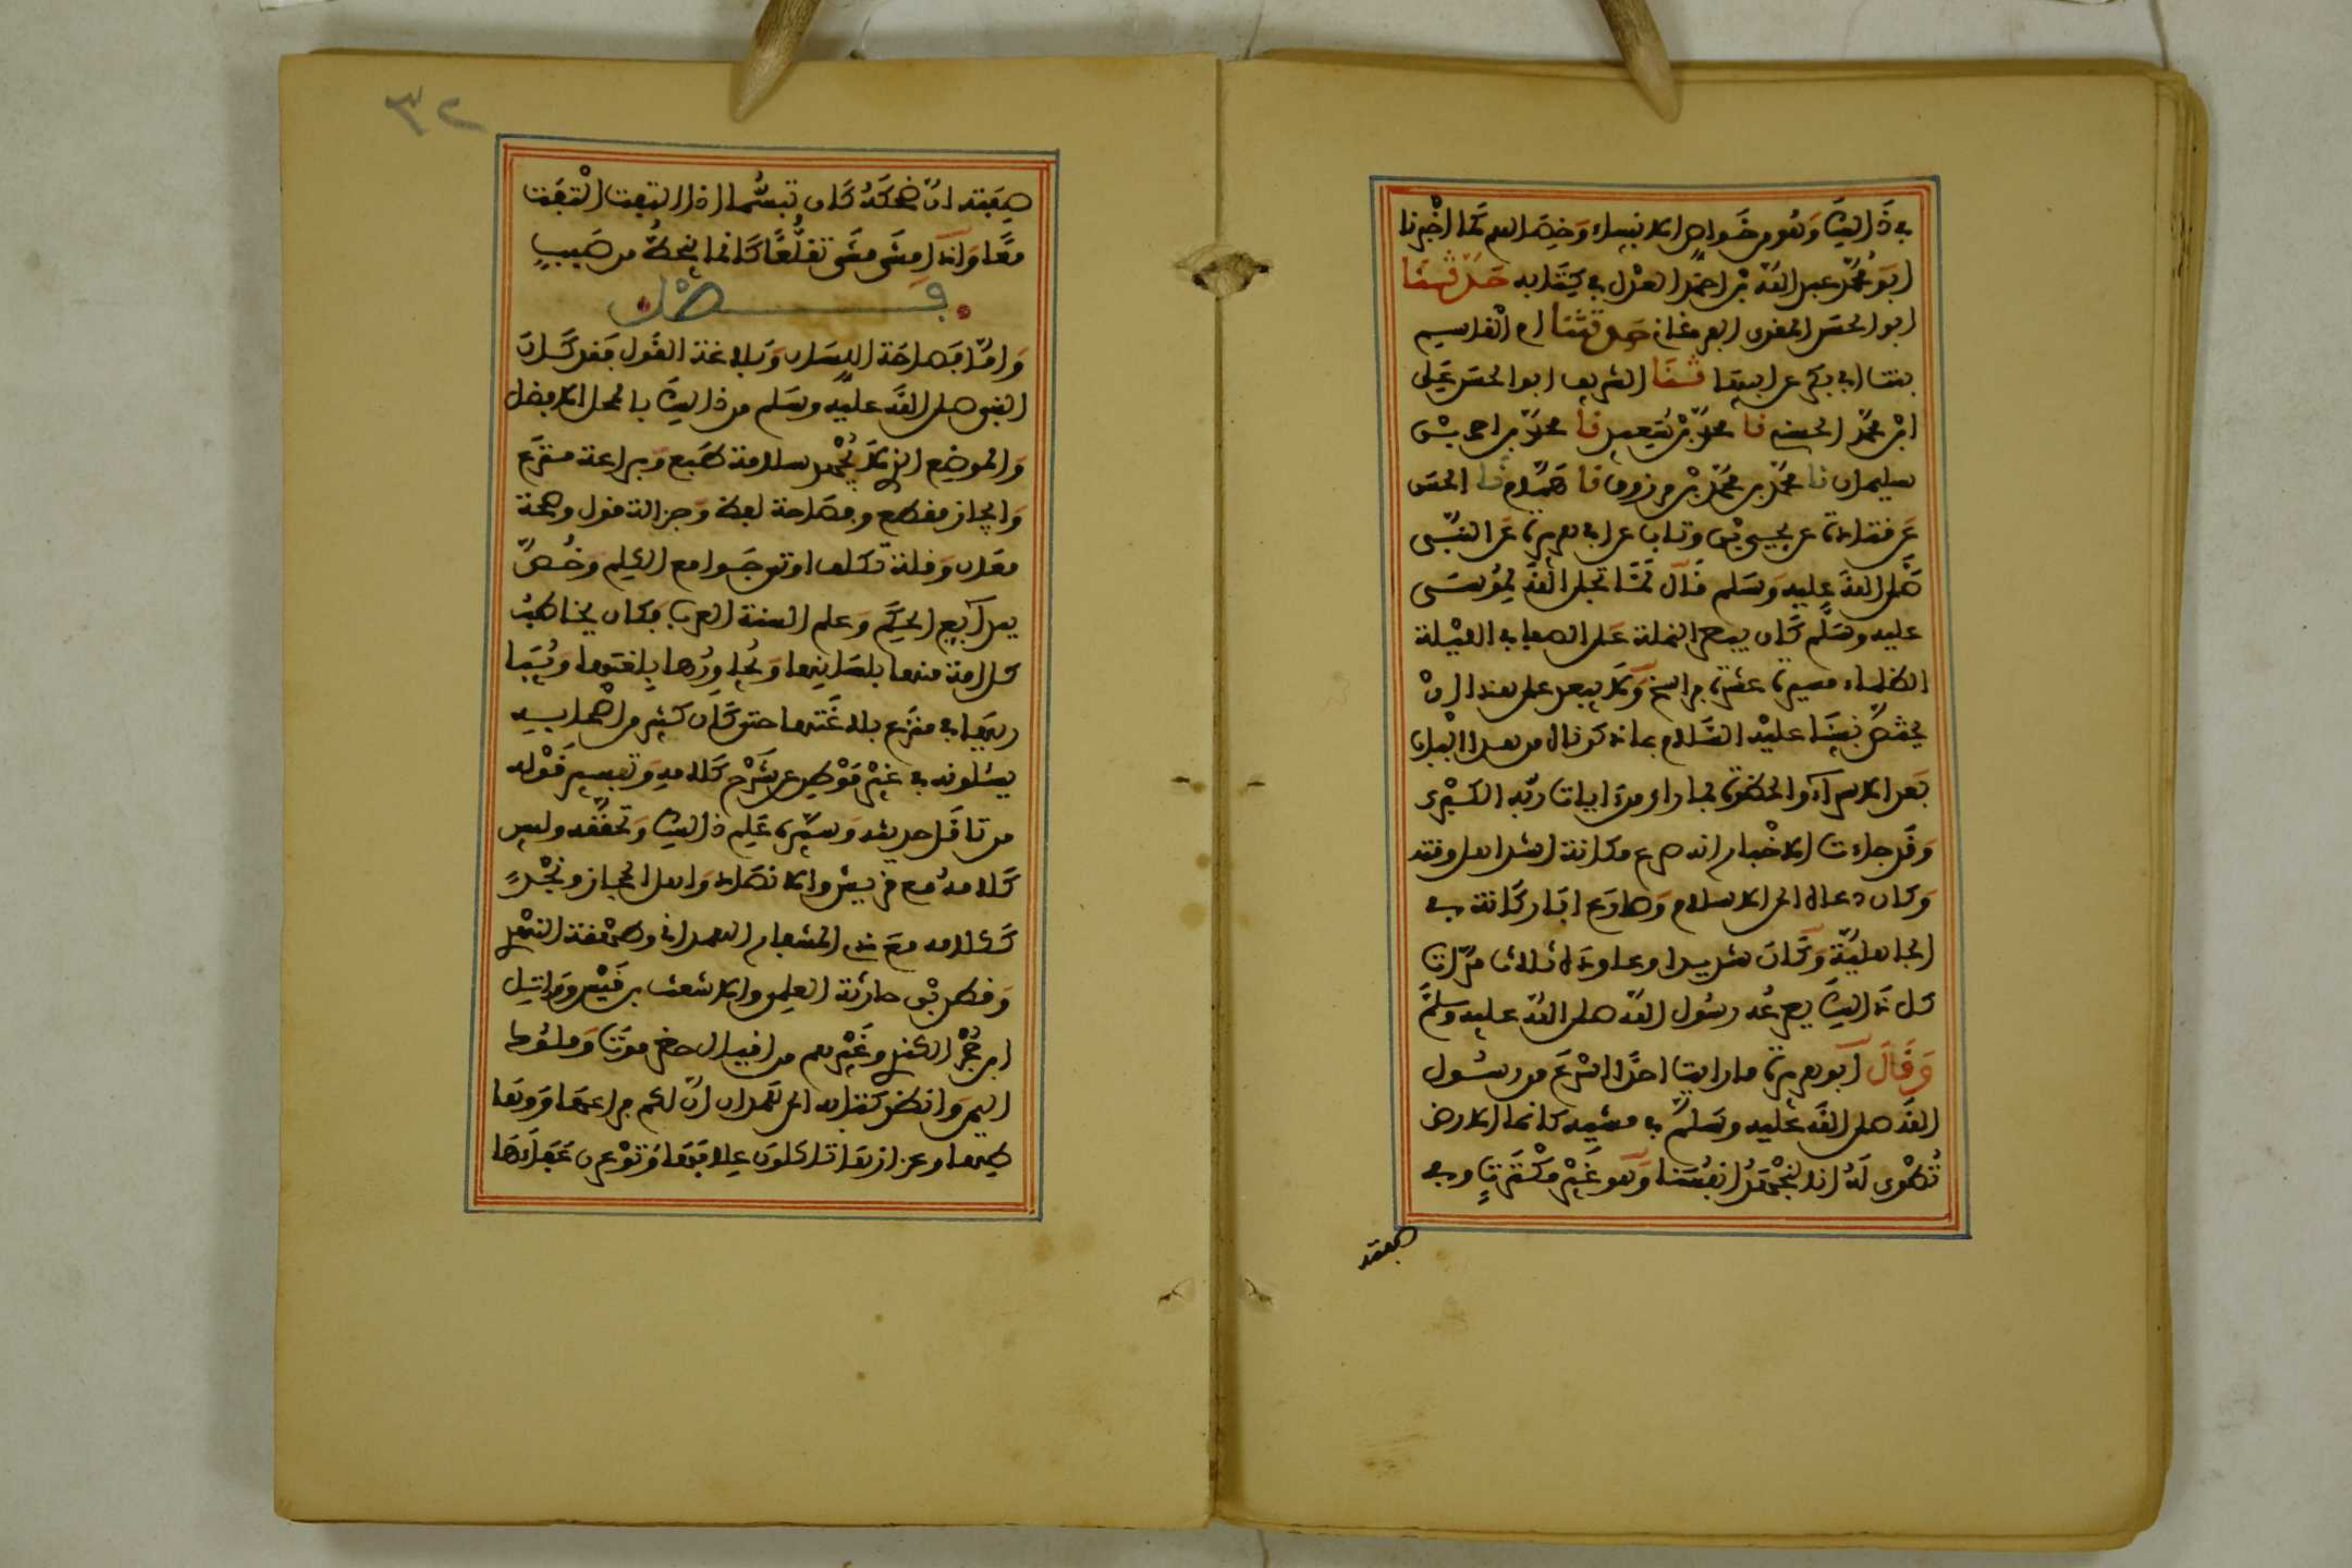 في ذلك وهو من خواص الانبياء وخصالهم كما اخبرنا
ابو محمد عبد الله بن احمد العدل في كتابه حدثنا
ابو الحسن المقرى الفرغاني حدثتنا ام القاسم
بنت ابي بكر عن ابيها ثنا الشريف ابو الحسن علي
ابن محمد الحسني نا محمد بن سعيد نا محمد بن احمد بن
سليمان نا محمد بن محمد بن مرزوق نا همام نا الحسن
عن قتادة عن يحيى بن وثاب عن ابي هريرة عن النبي
صلى الله عليه وسلم قال لما تجلى الله لموسى
عليه وسلم كان يبصر النملة على الصفا في الليلة
الظلماء مسيرة عشرة فراسخ ولا يبعد على هذا ان
يختص نبينا عليه السلام بما ذكرناه من هذا الباب
بعد الاسراء والحظوة بما راى من ايات ربه الكبرى
وقد جاءت الاخبار انه صرع ركانة اشد اهل وقته
وكان دعاه الى الاسلام وصارع ابا ركانة في
الجاهلية وكان شديدا وعاوده ثلاث مرات
كل ذلك يصرعه رسول الله صلى الله عليه وسلم
وقال ابو هريرة ما رايت احدا اسرع من رسول
الله صلى الله عليه وسلم في مشيه كانما الارض
تطوى له انا لنجهد انفسنا وهو غير مكترث وفي
صفته
٣٢
صفته ان ضحكه كان تبسما اذا التفت التفت
معا واذا مشى مشى تقلعا كانما ينحط من صبب
فصل
واما فصاحة اللسان وبلاغة القول فقد كان
النبي صلى الله عليه وسلم من ذلك بالمحل الافضل
والموضع الذي لا يجهل سلامة طبع وبراعة منزع
وايجاز مقطع وفصاحة لفظ وجزالة قول وصحة
معان وقلة تكلف اوتي جوامع الكلم وخص
ببدائع الحكم وعلم السنة العرب فكان يخاطب
كل امة منها بلسانها ويحاورها بلغتها ويبا
ريها في منزع بلاغتها حتى كان كثير من اصحابه
يسئلونه في غير موطن عن شرح كلامه وتفسير قوله
من تامل حديثه وسيره علم ذلك وتحققه وليس
كلامه مع قريش والانصار واهل الحجاز ونجد
ككلامه مع ذي المشعار الهمداني وطهفة النهدي
وقطن بن حارثة العليمي والاشعث بن قيس ووائل
ابن حجر الكندي وغيرهم من اقيال حضرموت وملوك
اليمن وانظر كتابه الى همدان ان لكم فراعها ووهاطها
وعزازها تاكلون علافها وترعون عفاءها